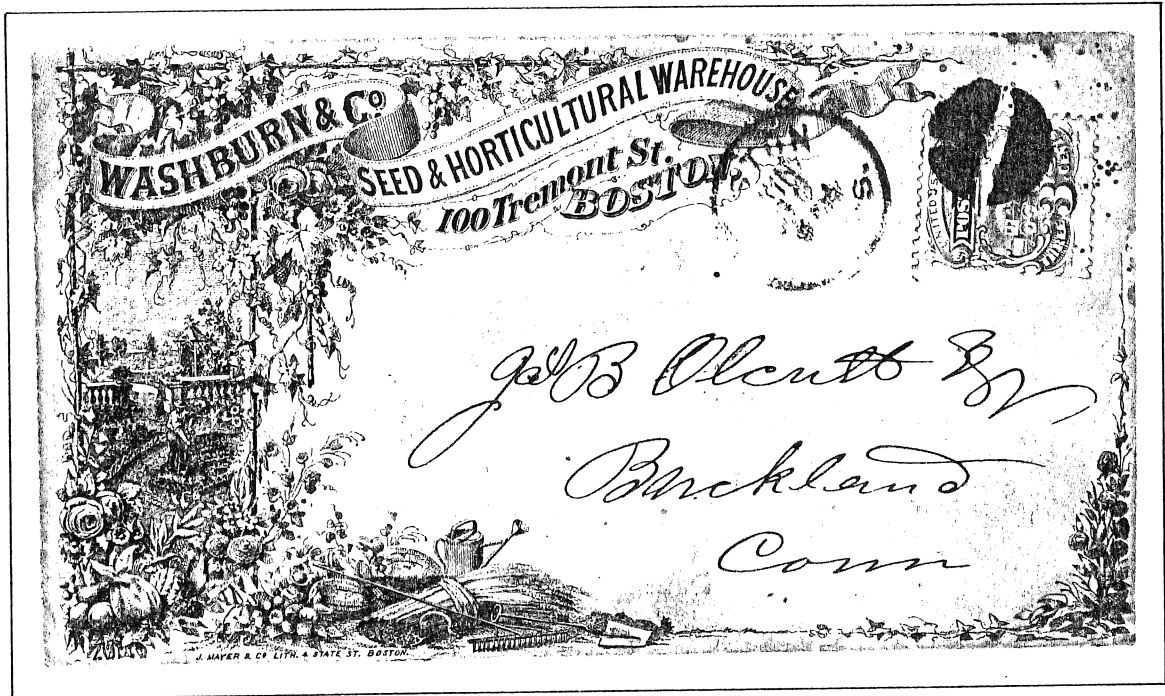 WASHBURN & Co.
SEED & HORTICULTURAL WAREHOUSE
100 Tremont St.
BOSTON.
S.
UNITED
POST
3
Jas B Olcutt Esq
Buckland
Conn
J. MAYER & Co LITH. 4 STATE ST. BOSTON.